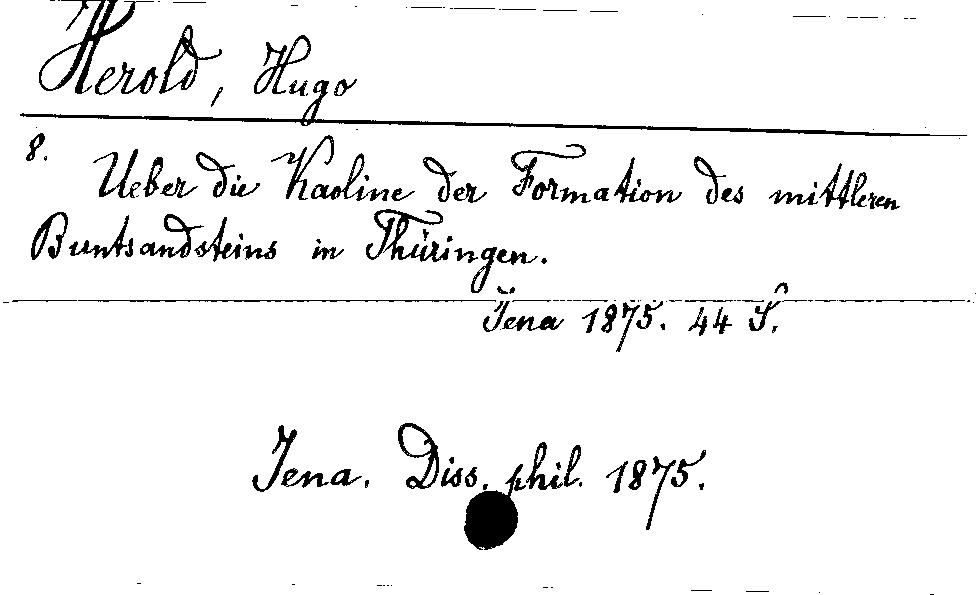 Herold, Hugo
8.
Ueber die Kaoline der Formation des mittleren
Buntsandsteins in Thüringen.
Jena 1875. 44 S.
Jena. Diss. phil. 1875.